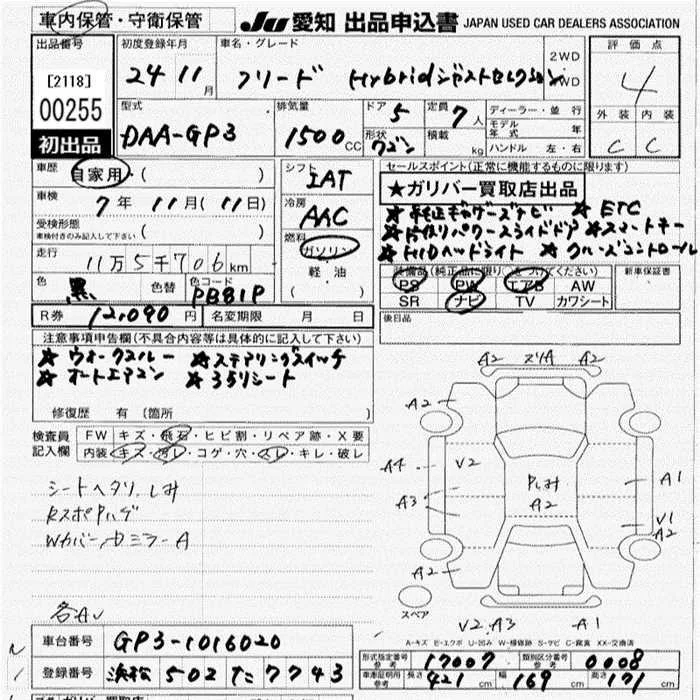 車内保管・守衛保管
JU 愛知 出品申込書 JAPAN USED CAR DEALERS ASSOCIATION
出品番号 初度登録年月 車名・グレード 評価点
[2118] 24年11月 フリード Hybridジャストセレクション 2WD 4WD 4
00255 型式 排気量 ドア 5 定員 7人 ディーラー・並行 外装 内装
初出品 DAA-GP3 1500CC 形状 ワゴン 積載 kg モデル年式 年 ハンドル 左・右 C C
車歴 自家用・( ) シフト IAT セールスポイント(正常に機能するものに限ります)
車検 7年 11月(11日) 冷房 AAC ★ガリバー買取店出品
受検形態 車検付きのみ記入して下さい ( ) 燃料 ガソリン ★純正ギャザーズナビ ★ETC
★片側パワースライドドア ★スマートキー
走行 11万5千706km 軽油 ★HIDヘッドライト ★クルーズコントロール
色 黒 色替 色コード PB81P ( ) 装備品(純正品に限り○をつけてください) 新車保証書
PS PW エアB AW
SR ナビ TV カワシート
R券 12,090円 名変期限 月 日 後日品
注意事項申告欄(不具合内容等は具体的に記入して下さい)
★ウォークスルー ★ステアリングスイッチ
★オートエアコン ★3列シート
修復歴 有 (箇所 )
検査員記入欄 FW キズ・飛石・ヒビ割・リペア跡・X要
内装 キズ・汚レ・コゲ・穴・スレ・キレ・破レ
シートヘタリ、しみ
RスポPハゲ
各AU
A2 A2
A2
A4 V2 A1
Pしみ
A3 A2 V1
A2
A2
スペア
V2 A3 A1
A-キズ E-エクボ U-凹み W-補修跡 S-サビ C-腐食 XX-交換済
車台番号 GP3-1016020 形式指定番号 参考 17007 類別区分番号 参考 0008
登録番号 浜松 502 た 7743 車庫証明用 参考 長さ 421cm 幅 169cm 高さ 171cm